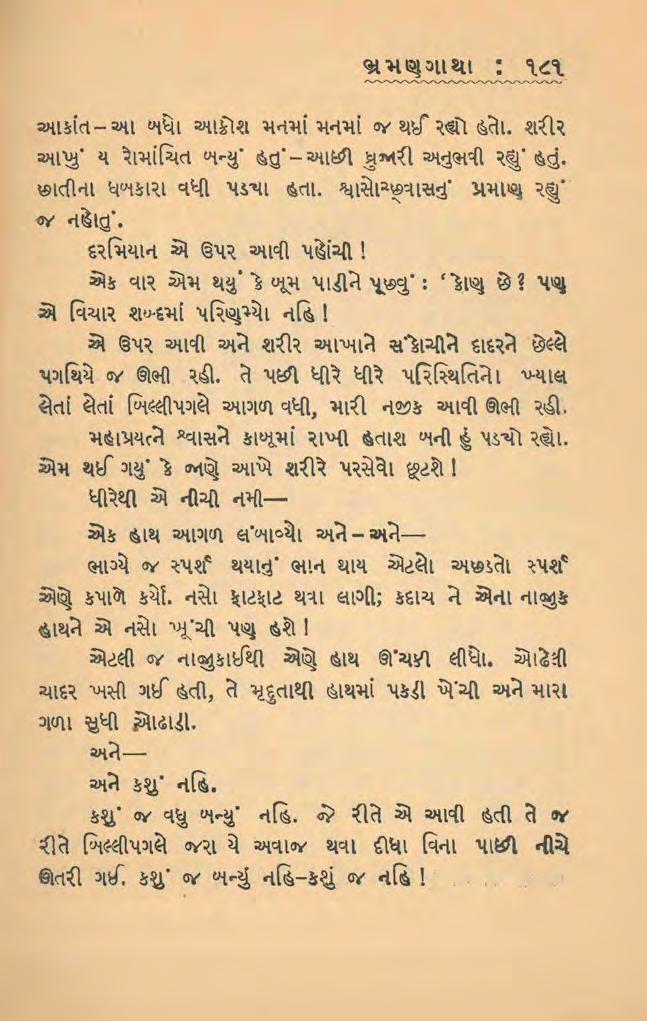 ભ્રમણગાથા : ૧૮૧
આક્રાંત–આ બધો આક્રોશ મનમાં મનમાં જ થઈ રહ્યો હતો. શરીર
આખું ય રોમાંચિત બન્યું હતું–આછી ધ્રુજારી અનુભવી રહ્યું હતું.
છાતીના ધબકારા વધી પડ્યા હતા. શ્વાસોચ્છ્વાસનું પ્રમાણ રહ્યું
જ નહોતું.
દરમિયાન એ ઉપર આવી પહોંચી !
એક વાર એમ થયું કે બૂમ પાડીને પૂછવું : ‘કોણ છે ? પણ
એ વિચાર શબ્દમાં પરિણમ્યો નહિ !
એ ઉપર આવી અને શરીર આખાને સંકોચીને દાદરને છેલ્લે
પગથિયે જ ઊભી રહી. તે પછી ધીરે ધીરે પરિસ્થિતિનો ખ્યાલ
લેતાં લેતાં બિલ્લીપગલે આગળ વધી, મારી નજીક આવી ઊભી રહી.
મહાપ્રયત્ને શ્વાસને કાબૂમાં રાખી હતાશ બની હું પડ્યો રહ્યો.
એમ થઈ ગયું કે જાણે આખે શરીરે પરસેવો છૂટશે !
ધીરેથી એ નીચી નમી—
એક હાથ આગળ લંબાવ્યો અને – અને—
ભાગ્યે જ સ્પર્શ થયાનું ભાન થાય એટલો અછડતો સ્પર્શ
એણે કપાળે કર્યો. નસો ફાટફાટ થવા લાગી; કદાચ ને એના નાજુક
હાથને એ નસો ખૂંચી પણ હશે !
એટલી જ નાજુકાઈથી એણે હાથ ઊંચકી લીધો. ઓઢેલી
ચાદર ખસી ગઈ હતી, તે મૃદુતાથી હાથમાં પકડી ખેંચી અને મારા
ગળા સુધી ઓઢાડી.
અને—
અને કશું નહિ.
કશું જ વધુ બન્યું નહિ. જે રીતે એ આવી હતી તે જ
રીતે બિલ્લીપગલે જરા યે અવાજ થવા દીધા વિના પાછી નીચે
ઊતરી ગઈ. કશું જ બન્યું નહિ–કશું જ નહિ !